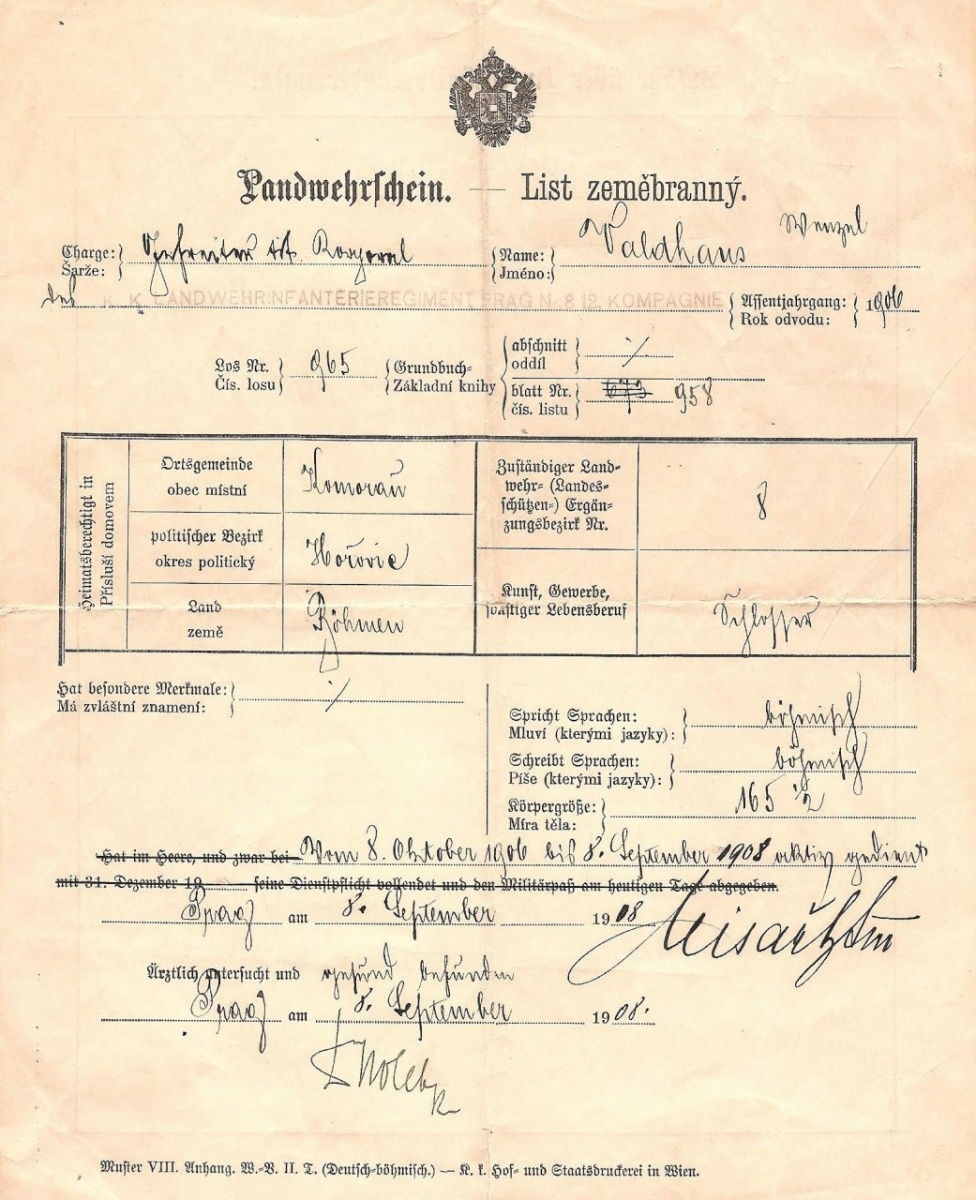 Landwehrschein. — List zeměbranný.
Charge: Šarže: Gefreiter tit. Korporal Name: Jméno: Waldhans Wenzel
des K. K. LANDWEHRINFANTERIEREGIMENT PRAG Nr. 8 12. KOMPAGNIE Assentjahrgang: Rok odvodu: 1906
Los Nr. Čís. losu 965 Grundbuch- Základní knihy abschnitt oddíl ./.
blatt Nr. čís. listu 673 958
Heimatsberechtigt in
Přísluší domovem
Ortsgemeinde
obec místní
Komorau
politischer Bezirk
okres politický
Hořovic
Land
země
Böhmen
Zuständiger Land-
wehr- (Landes-
schützen-) Ergän-
zungsbezirk Nr.
8
Kunst, Gewerbe,
sonstiger Lebensberuf
Schlosser
Hat besondere Merkmale:
Má zvláštní znamení:
./.
Spricht Sprachen:
Mluví (kterými jazyky):
böhmisch
Schreibt Sprachen:
Píše (kterými jazyky):
böhmisch
Körpergröße:
Míra těla:
165 1/2
Hat im Heere, und zwar bei Vom 8. Oktober 1906 bis 8. September 1908 aktiv gedient
mit 31. Dezember 19 seine Dienstpflicht vollendet und den Militärpaß am heutigen Tage abgegeben.
Prag am 8. September 1908
Ärztlich untersucht und gesund befunden
Prag am 8. September 1908.
Muster VIII. Anhang. W.-V. II. T. (Deutsch-böhmisch.) — K. k. Hof- und Staatsdruckerei in Wien.